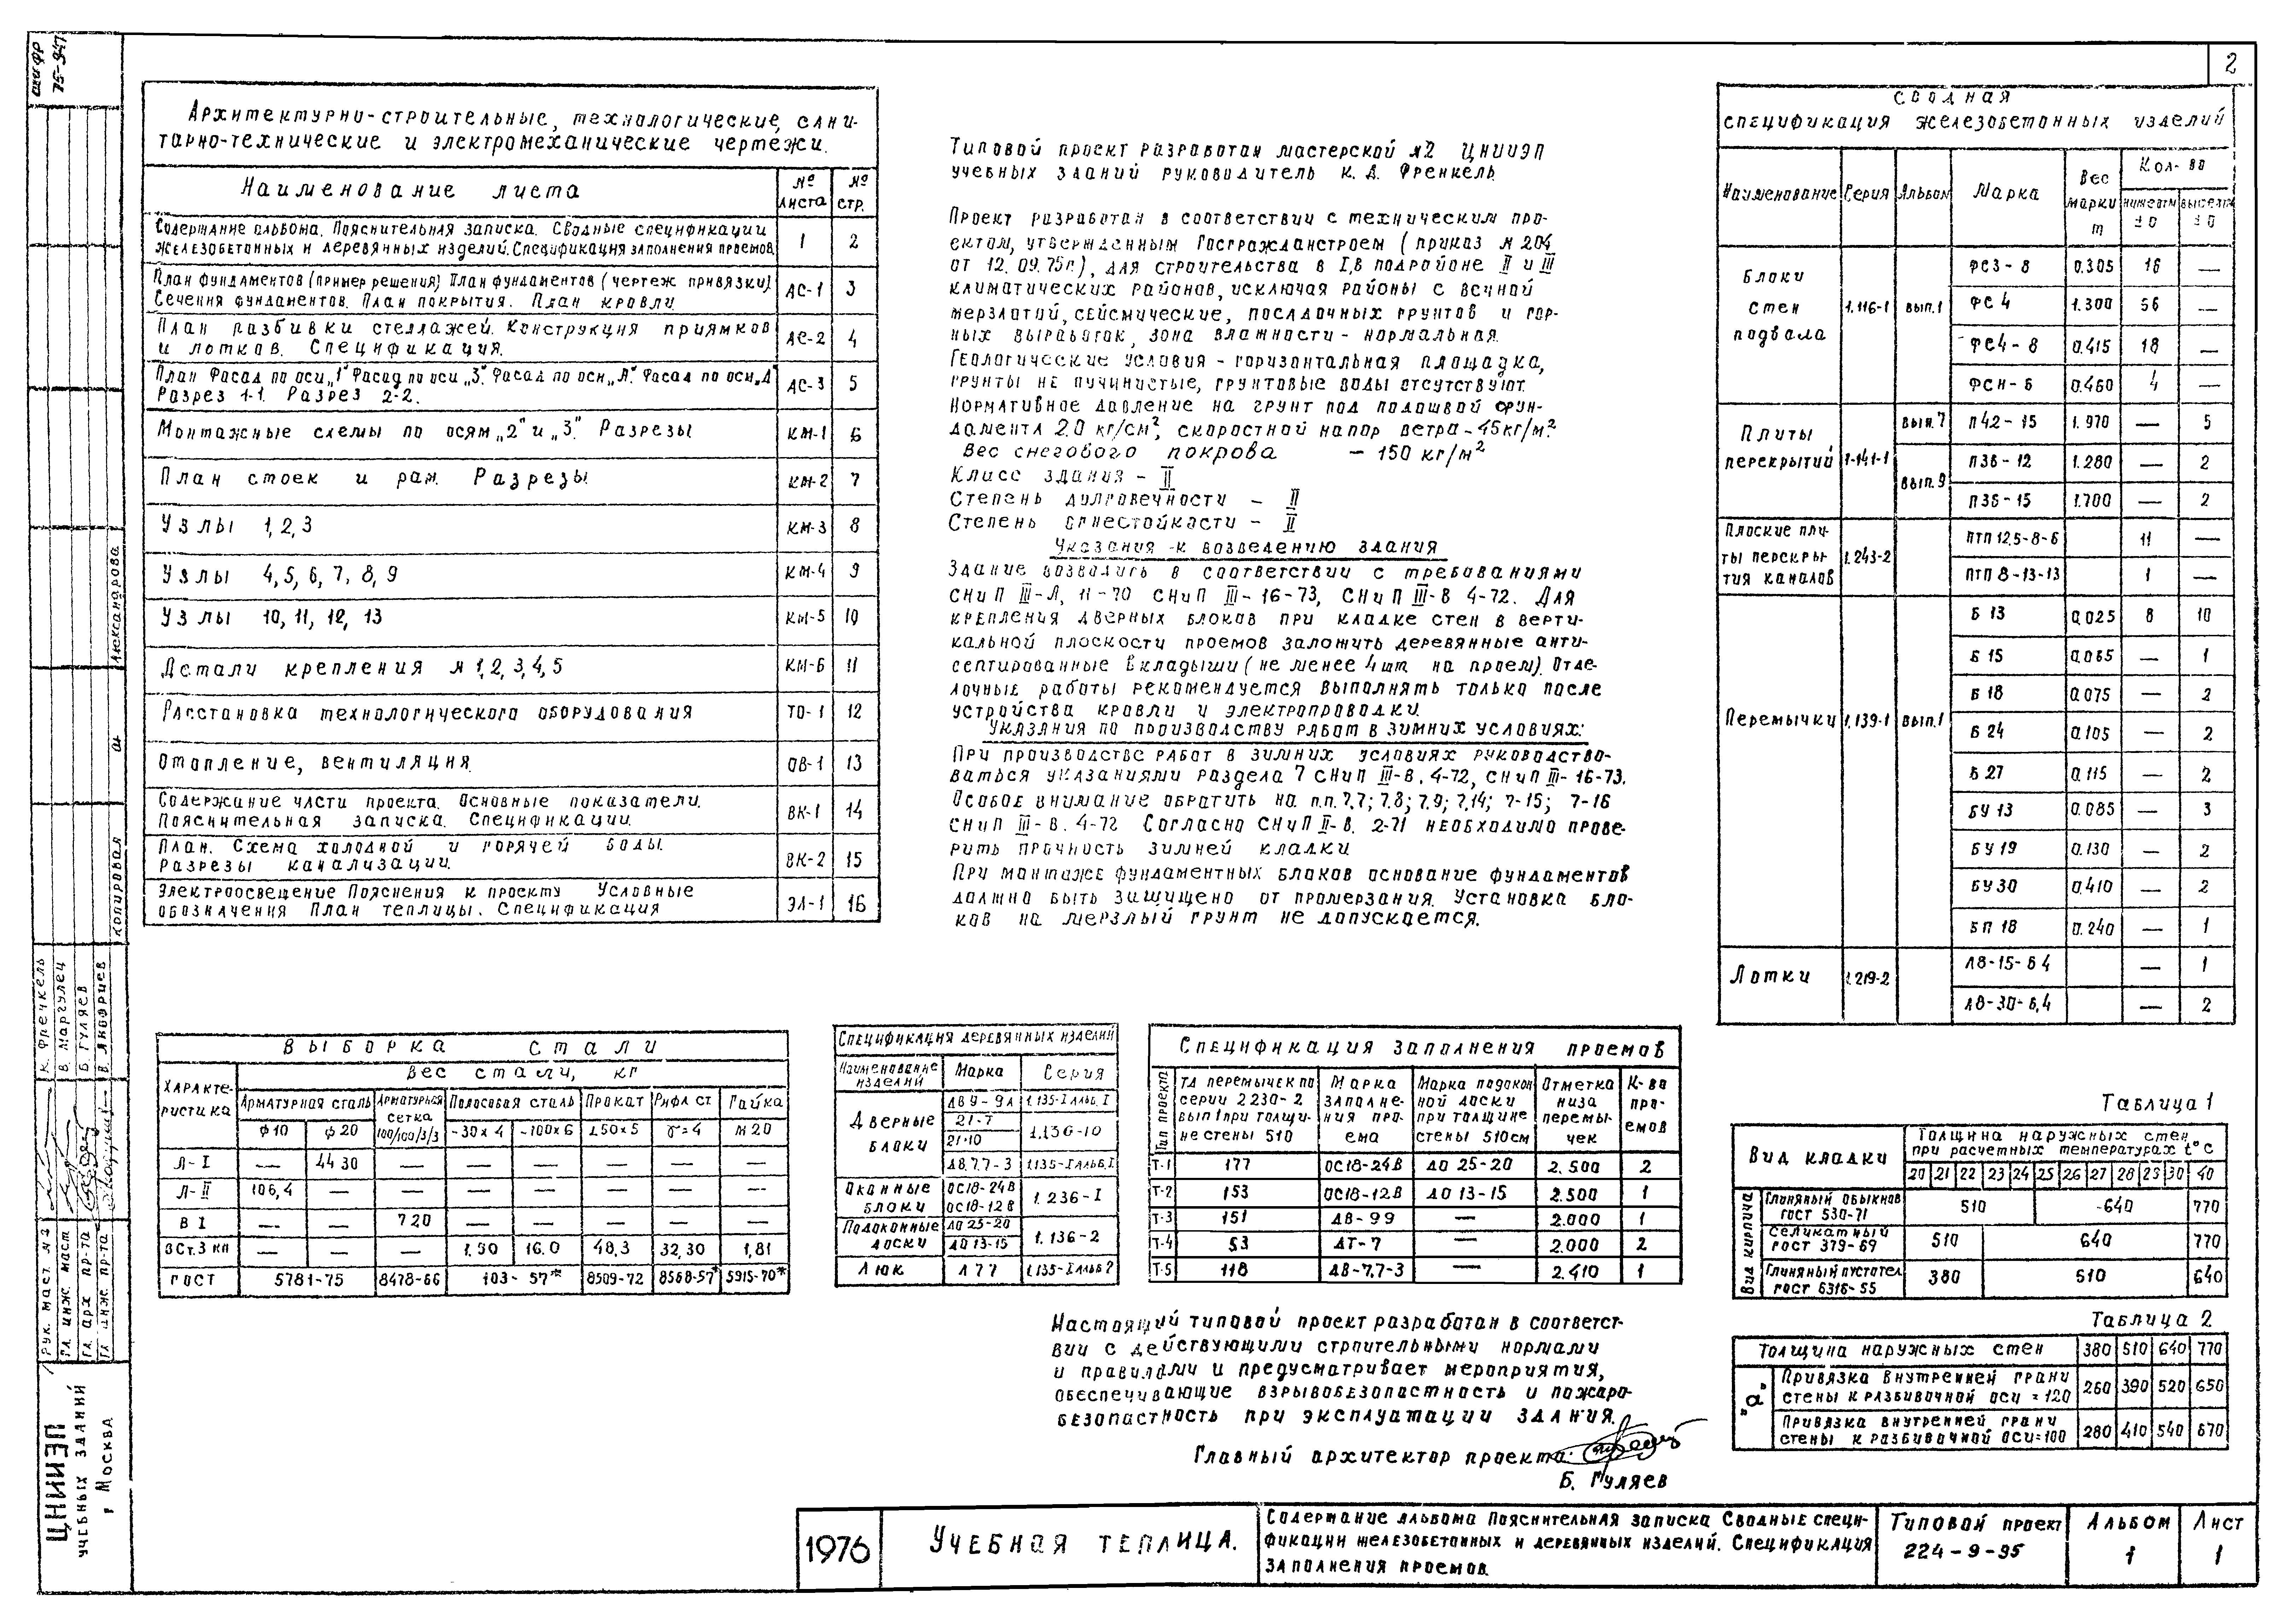 2
шифр
75-947
Архитектурно-строительные, технологические, сани-
тарно-технические и электромеханические чертежи.
Наименование листа
№ листа
№ стр.
Содержание альбома. Пояснительная записка. Сводные спецификации
железобетонных и деревянных изделий. Спецификация заполнения проемов
1 2
План фундаментов (пример решения) План фундаментов (чертеж привязки)
Сечения фундаментов. План покрытия. План кровли.
АС-1 3
План разбивки стеллажей. Конструкция приямков
и лотков. Спецификация.
АС-2 4
План Фасад по оси „1“ Фасад по оси „3“. Фасад по оси „А“. Фасад по оси „Д“
Разрез 1-1. Разрез 2-2.
АС-3 5
Монтажные схемы по осям „2“ и „3“. Разрезы КМ-1 6
План стоек и рам. Разрезы КМ-2 7
Узлы 1, 2, 3 КМ-3 8
Узлы 4, 5, 6, 7, 8, 9 КМ-4 9
Узлы 10, 11, 12, 13 КМ-5 10
Детали крепления № 1, 2, 3, 4, 5 КМ-6 11
Расстановка технологического оборудования ТО-1 12
Отопление, вентиляция ОВ-1 13
Содержание части проекта. Основные показатели.
Пояснительная записка. Спецификации.
ВК-1 14
План. Схема холодной и горячей воды.
Разрезы канализации.
ВК-2 15
Электроосвещение Пояснения к проекту Условные
обозначения План теплицы. Спецификация
ЭЛ-1 16
Типовой проект разработан мастерской №2 ЦНИИЭП
учебных зданий руководитель К. А. Френкель
Проект разработан в соответствии с техническим про-
ектом, утвержденным Госгражданстроем (приказ № 204
от 12.09.75г.), для строительства в I,В подрайоне II и III
климатических районов, исключая районы с вечной
мерзлотой, сейсмические, посадочных грунтов и гор-
ных выработок, зона влажности - нормальная.
Геологические условия - горизонтальная площадка,
грунты не пучинистые, грунтовые воды отсутствуют.
Нормативное давление на грунт под подошвой фун-
дамента 2.0 кг/см², скоростной напор ветра - 45кг/м²
Вес снегового покрова - 150 кг/м²
Класс здания - II
Степень долговечности - II
Степень огнестойкости - II
Указания к возведению здания
Здание возводить в соответствии с требованиями
СНиП III-Л, 11-70 СНиП III-16-73, СНиП III-В 4-72. Для
крепления дверных блоков при кладке стен в верти-
кальной плоскости проемов заложить деревянные анти-
септированные вкладыши (не менее 4 шт. на проем). Отде-
лочные работы рекомендуется выполнять только после
устройства кровли и электропроводки.
Указания по производству работ в зимних условиях:
При производстве работ в зимних условиях руководство-
ваться указаниями раздела 7 СНиП III-В. 4-72, СНиП III-16-73.
Особое внимание обратить на п.п. 7,7; 7,8; 7,9; 7,14; 7-15; 7-16
СНиП III-В. 4-72 Согласно СНиП II-В. 2-71 необходимо прове-
рить прочность зимней кладки
При монтаже фундаментных блоков основание фундаментов
должно быть защищено от промерзания. Установка бло-
ков на мерзлый грунт не допускается.
Сводная
спецификация железобетонных изделий
Наименование Серия Альбом Марка Вес марки т Кол-во
ниже отм ± 0 выше отм ± 0
Блоки стен подвала 1.116-1 вып.1
ФС3-8 0.305 16 —
ФС4 1.300 56 —
ФС4-8 0.415 18 —
ФСН-6 0.460 4 —
Плиты перекрытий 1-141-1
вып.7 П42-15 1.970 — 5
вып.9 П36-12 1.280 — 2
П36-15 1.700 — 2
Плоские пли-
ты перекры-
тия каналов
1.243-2
ПТП 12,5-8-6 11 —
ПТП 8-13-13 1 —
Перемычки 1.139-1 вып.1
Б 13 0.025 8 10
Б 15 0.065 — 1
Б 18 0.075 — 2
Б 24 0.105 — 2
Б 27 0.115 — 2
БУ 13 0.085 — 3
БУ 19 0.130 — 2
БУ 30 0.410 — 2
БП 18 0.240 — 1
Лотки 1.219-2
Л8-15-64 — 1
Л8-30-6,4 — 2
Выборка стали
Характе-
ристика
Вес стали, кг
Арматурная сталь Арматурная сетка Полосовая сталь Прокат Рифл ст. Гайка
ф10 ф20 100/100/3/3 -30х4 -100х6 L50х5 δ=4 М20
А-I — 44 30 — — — — — —
А-II 106,4 — — — — — — —
В I — — 720 — — — — —
ВСт.3 кп — — — 1.90 16.0 48,3 32,30 1,81
ГОСТ 5781-75 8478-66 103-57* 8509-72 8568-57* 5915-70*
Спецификация деревянных изделий
Наименование изделий Марка Серия
Дверные блоки
ДВ9-9Л 1.135-I Альб.I
21-7
21-10
1.136-10
ДВ,7,7-3 1.135-I Альб.I
Оконные блоки
ОС18-24В
ОС18-12В
1.236-I
Подоконные доски
ДО 25-20
ДО 13-15
1.136-2
Люк Л77 1.135-I Альб?
Спецификация заполнения проемов
Тип проекта
Тл перемычек по
серии 2 230-2
вып 1 при толщи-
не стены 510
Марка
заполне-
ния про-
ема
Марка подокон
ной доски
при толщине
стены 510см
Отметка
низа
перемы-
чек
К-во
про-
емов
Т-1 177 ОС18-24В ДО 25-20 2.500 2
Т-2 153 ОС18-12В ДО 13-15 2.500 1
Т-3 151 ДВ-99 — 2.000 1
Т-4 53 ДТ-7 — 2.000 2
Т-5 118 ДВ-7,7-3 — 2.410 1
Таблица 1
Вид кладки
Толщина наружных стен
при расчетных температурах t°с
20 21 22 23 24 25 26 27 28 29 30 40
Вид кирпича
Глиняный обыкнов
ГОСТ 530-71
510 640 770
Силикатный
ГОСТ 379-69
510 640 770
Глиняный пустотел
ГОСТ 6316-55
380 510 640
Таблица 2
Толщина наружных стен 380 510 640 770
„а“
Привязка внутренней грани
стены к разбивочной оси = 120
260 390 520 650
Привязка внутренней грани
стены к разбивочной оси=100
280 410 540 670
Настоящий типовой проект разработан в соответст-
вии с действующими строительными нормами
и правилами и предусматривает мероприятия,
обеспечивающие взрывобезопастность и пожаро-
безопастность при эксплуатации здания.
Главный архитектор проекта
Б. Гуляев
1976
Учебная теплица.
Содержание альбома Пояснительная записка Сводные специ-
фикации железобетонных и деревянных изделий. Спецификация
заполнения проемов.
Типовой проект
224-9-95
Альбом
1
Лист
1
Александрова
Копировал
К. Френкель
В. Маргулец
Б. Гуляев
Рук. маст. №2
Гл. инж. маст
Гл. арх пр-та
Гл инж. пр-та
ЦНИИЭП
учебных зданий
г Москва